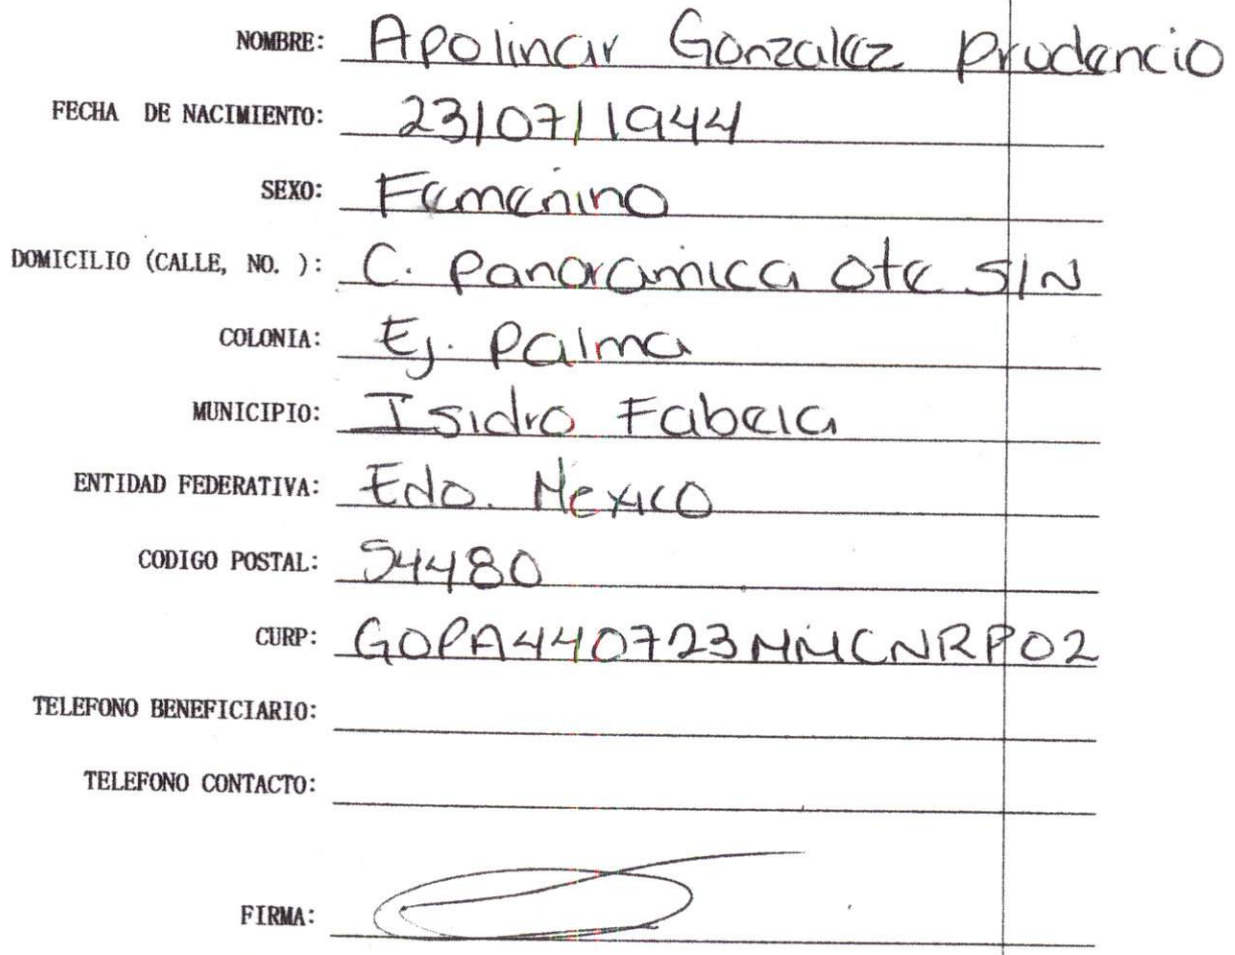 NOMBRE: Apolinar Gonzalez Prudencio
FECHA DE NACIMIENTO: 23/07/1944
SEXO: Femenino
DOMICILIO (CALLE, NO. ): C. Panoramica Ote S/N
COLONIA: Ej. Palma
MUNICIPIO: Isidro Fabela
ENTIDAD FEDERATIVA: Edo. Mexico
CODIGO POSTAL: 54480
CURP: GOPA440723MMCNRP02
TELEFONO BENEFICIARIO:
TELEFONO CONTACTO:
FIRMA: